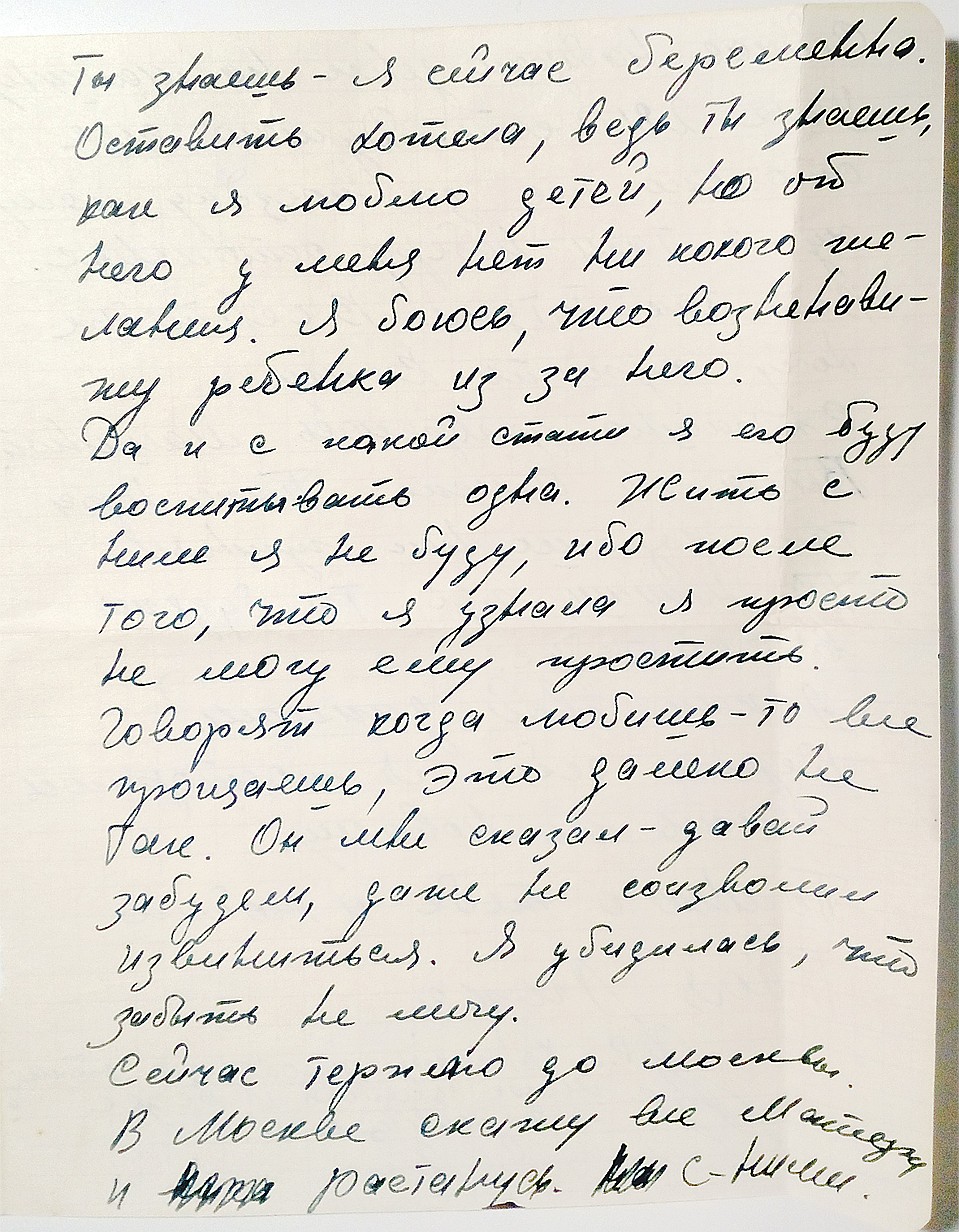 Ты знаешь - я сейчас беременна.
Оставить хотела, ведь ты знаешь,
как я люблю детей, но от
него у меня нет ни какого же-
лания. Я боюсь, что возненави-
жу ребенка из за него.
Да и с какой стати я его буду
воспитывать одна. Жить с
ним я не буду, ибо после
того, что я узнала я просто
не могу ему простить.
Говорят когда любишь-то все
прощаешь, это далеко не
так. Он мне сказал - давай
забудем, даже не соизволил
извиниться. Я убедилась, что
забыть не могу.
Сейчас терплю до москвы.
В Москве скажу все
и растанусь с-ними.